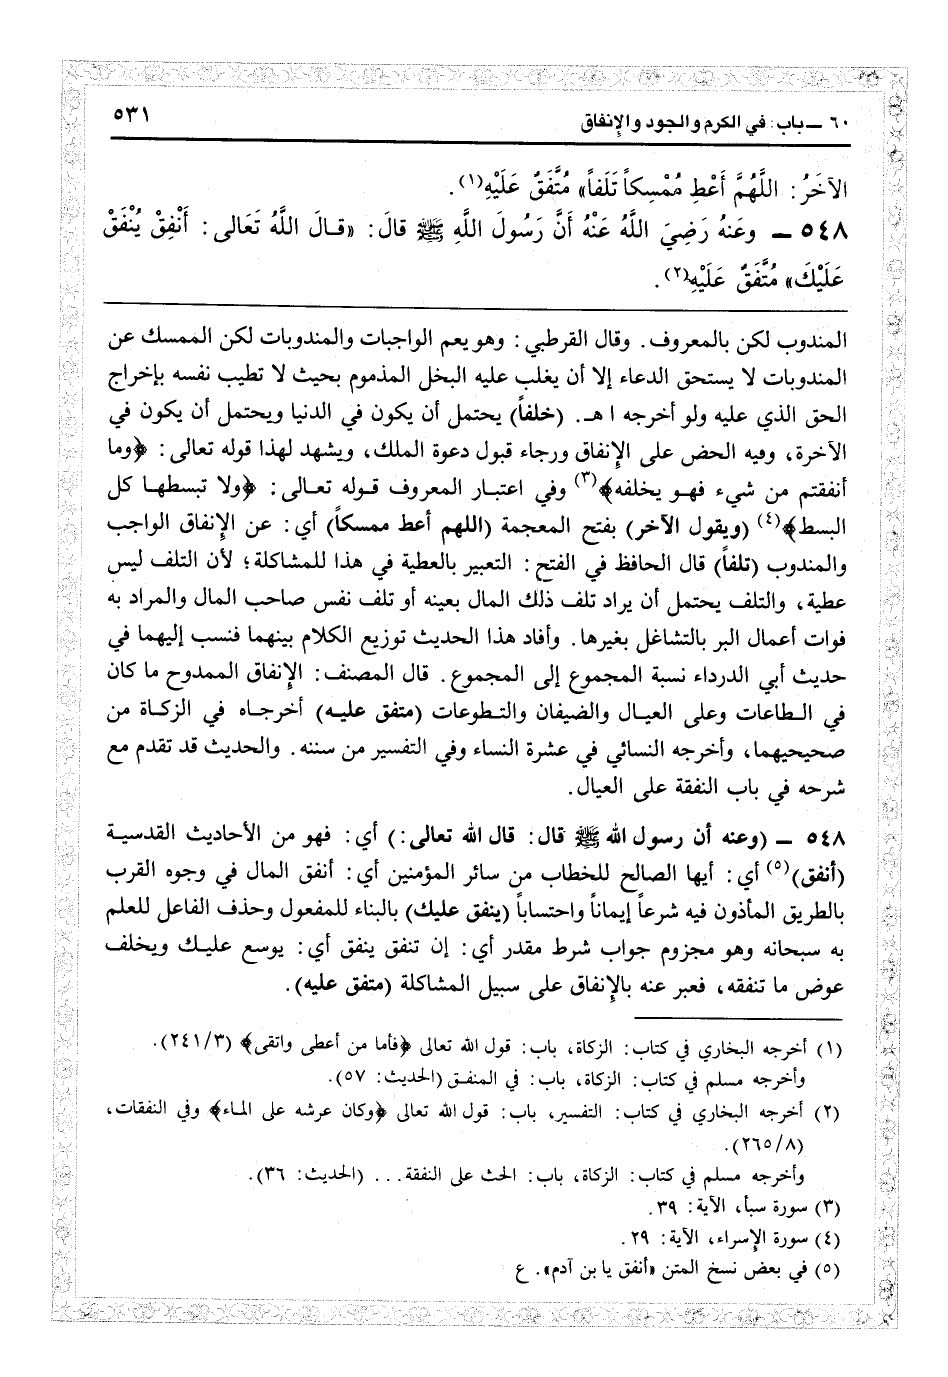 ٦٠ ــ باب: في الكرم والجود والإنفاق
٥٣١
الآخَرُ: اللَّهُمَّ أَعْطِ مُمْسِكاً تَلَفاً» مُتَّفَقٌ عَلَيْهِ(١).
٥٤٨ ــ وعَنهُ رَضِيَ اللَّهُ عَنْهُ أَنَّ رَسُولَ اللَّهِ ﷺ قالَ: «قـالَ اللَّهُ تَعَالى: أَنْفِقْ يُنْفَقْ
عَلَيْكَ» مُتَّفَقٌ عَلَيْهِ(٢).
المندوب لكن بالمعروف. وقال القرطبي: وهو يعم الواجبات والمندوبات لكن الممسك عن
المندوبات لا يستحق الدعاء إلا أن يغلب عليه البخل المذموم بحيث لا تطيب نفسه بإخراج
الحق الذي عليه ولو أخرجه ا هـ. (خلفاً) يحتمل أن يكون في الدنيا ويحتمل أن يكون في
الآخرة، وفيه الحض على الإنفاق ورجاء قبول دعوة الملك، ويشهد لهذا قوله تعالى: ﴿وما
أنفقتم من شيء فهـو يخلفه﴾(٣) وفي اعتبار المعروف قـوله تعـالى: ﴿ولا تبسطهـا كل
البسط﴾(٤) (ويقول الآخر) بفتح المعجمة (اللهم أعط ممسكاً) أي: عن الإنفاق الواجب
والمندوب (تلفاً) قال الحافظ في الفتح: التعبير بالعطية في هذا للمشاكلة؛ لأن التلف ليس
عطية، والتلف يحتمل أن يراد تلف ذلك المال بعينه أو تلف نفس صاحب المال والمراد به
فوات أعمال البر بالتشاغل بغيرها. وأفاد هذا الحديث توزيع الكلام بينهما فنسب إليهما في
حديث أبي الدرداء نسبة المجموع إلى المجموع. قال المصنف: الإنفاق الممدوح ما كان
في الـطاعات وعلى العيال والضيفان والتـطوعات (متفق عليـه) أخرجـاه في الزكـاة من
صحيحيهما، وأخرجه النسائي في عشرة النساء وفي التفسير من سننه. والحديث قد تقدم مع
شرحه في باب النفقة على العيال.
٥٤٨ ــ (وعنه أن رسول الله ﷺ قال: قال الله تعالى:) أي: فهو من الأحاديث القدسيـة
(أنفق)(٥) أي: أيها الصالح للخطاب من سائر المؤمنين أي: أنفق المال في وجوه القرب
بالطريق المأذون فيه شرعاً إيماناً واحتساباً (ينفق عليك) بالبناء للمفعول وحذف الفاعل للعلم
به سبحانه وهو مجزوم جواب شرط مقدر أي: إن تنفق ينفق أي: يوسع عليـك ويخلف
عوض ما تنفقه، فعبر عنه بالإنفاق على سبيل المشاكلة (متفق عليه).
(١) أخرجه البخاري في كتاب: الزكاة، باب: قول الله تعالى ﴿فأما من أعطى واتقى﴾ (٢٤١/٣).
وأخرجه مسلم في كتاب: الزكاة، باب: في المنفـق (الحديث: ٥٧).
(٢) أخرجه البخاري في كتاب: التفسير، باب: قول الله تعالى ﴿وكان عرشه على الماء﴾ وفي النفقات،
(٢٦٥/٨).
وأخرجه مسلم في كتاب: الزكاة، باب: الحث على النفقة... (الحديث: ٣٦).
(٣) سورة سبأ، الآية: ٣٩.
(٤) سورة الإسراء، الآية: ٢٩.
(٥) في بعض نسخ المتن «أنفق يا بن آدم». ع